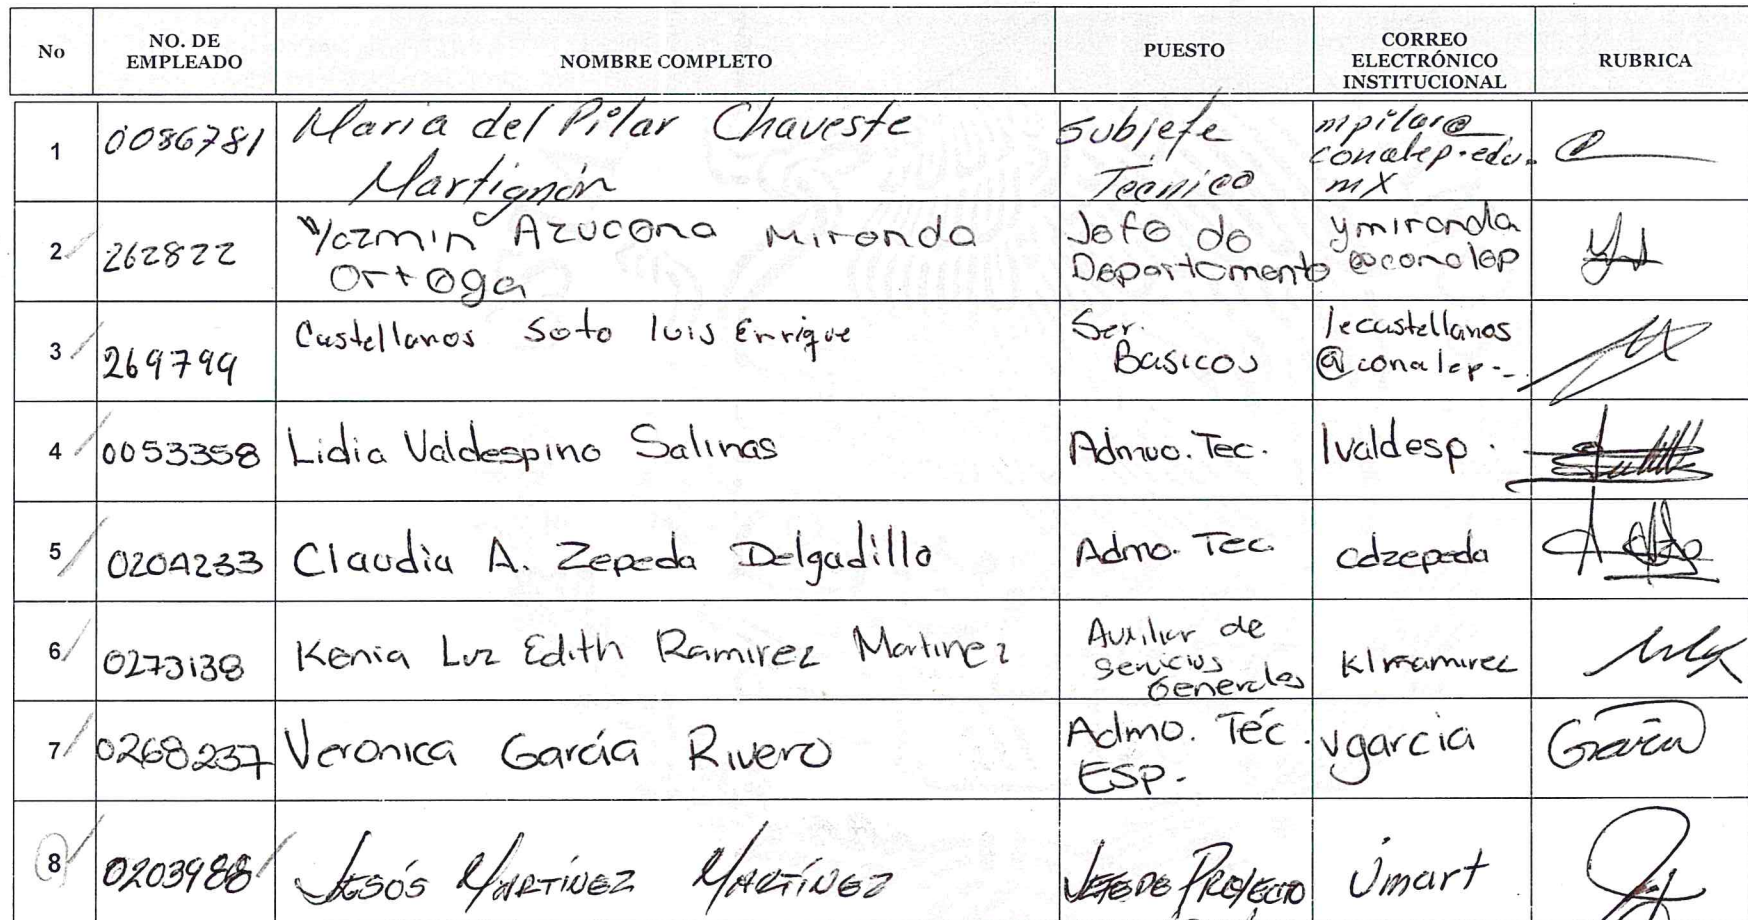 No NO. DE EMPLEADO NOMBRE COMPLETO PUESTO CORREO ELECTRÓNICO INSTITUCIONAL RUBRICA
1 0086781 Maria del Pilar Chaveste Subjefe mpilar@
Martignón Técnico conalep.edu.
mx
2 262822 Yazmin Azucena Miranda Jefe de ymiranda
Ortega Departamento @conalep
3 269799 Castellanos Soto luis Enrique Ser. lecastellanos
Basicos @conalep.-
4 0053358 Lidia Valdespino Salinas Admvo. Tec. lvaldesp.
5 0204233 Claudia A. Zepeda Delgadillo Admo. Tec. cdzepeda
6 0273138 Kenia Luz Edith Ramirez Martinez Auxiliar de klramirez
Servicios
Generales
7 0268237 Veronica García Rivero Admo. Téc. vgarcia
ESP.
8 0203988 Jesús Martínez Martínez Jefe de Proyecto jmart